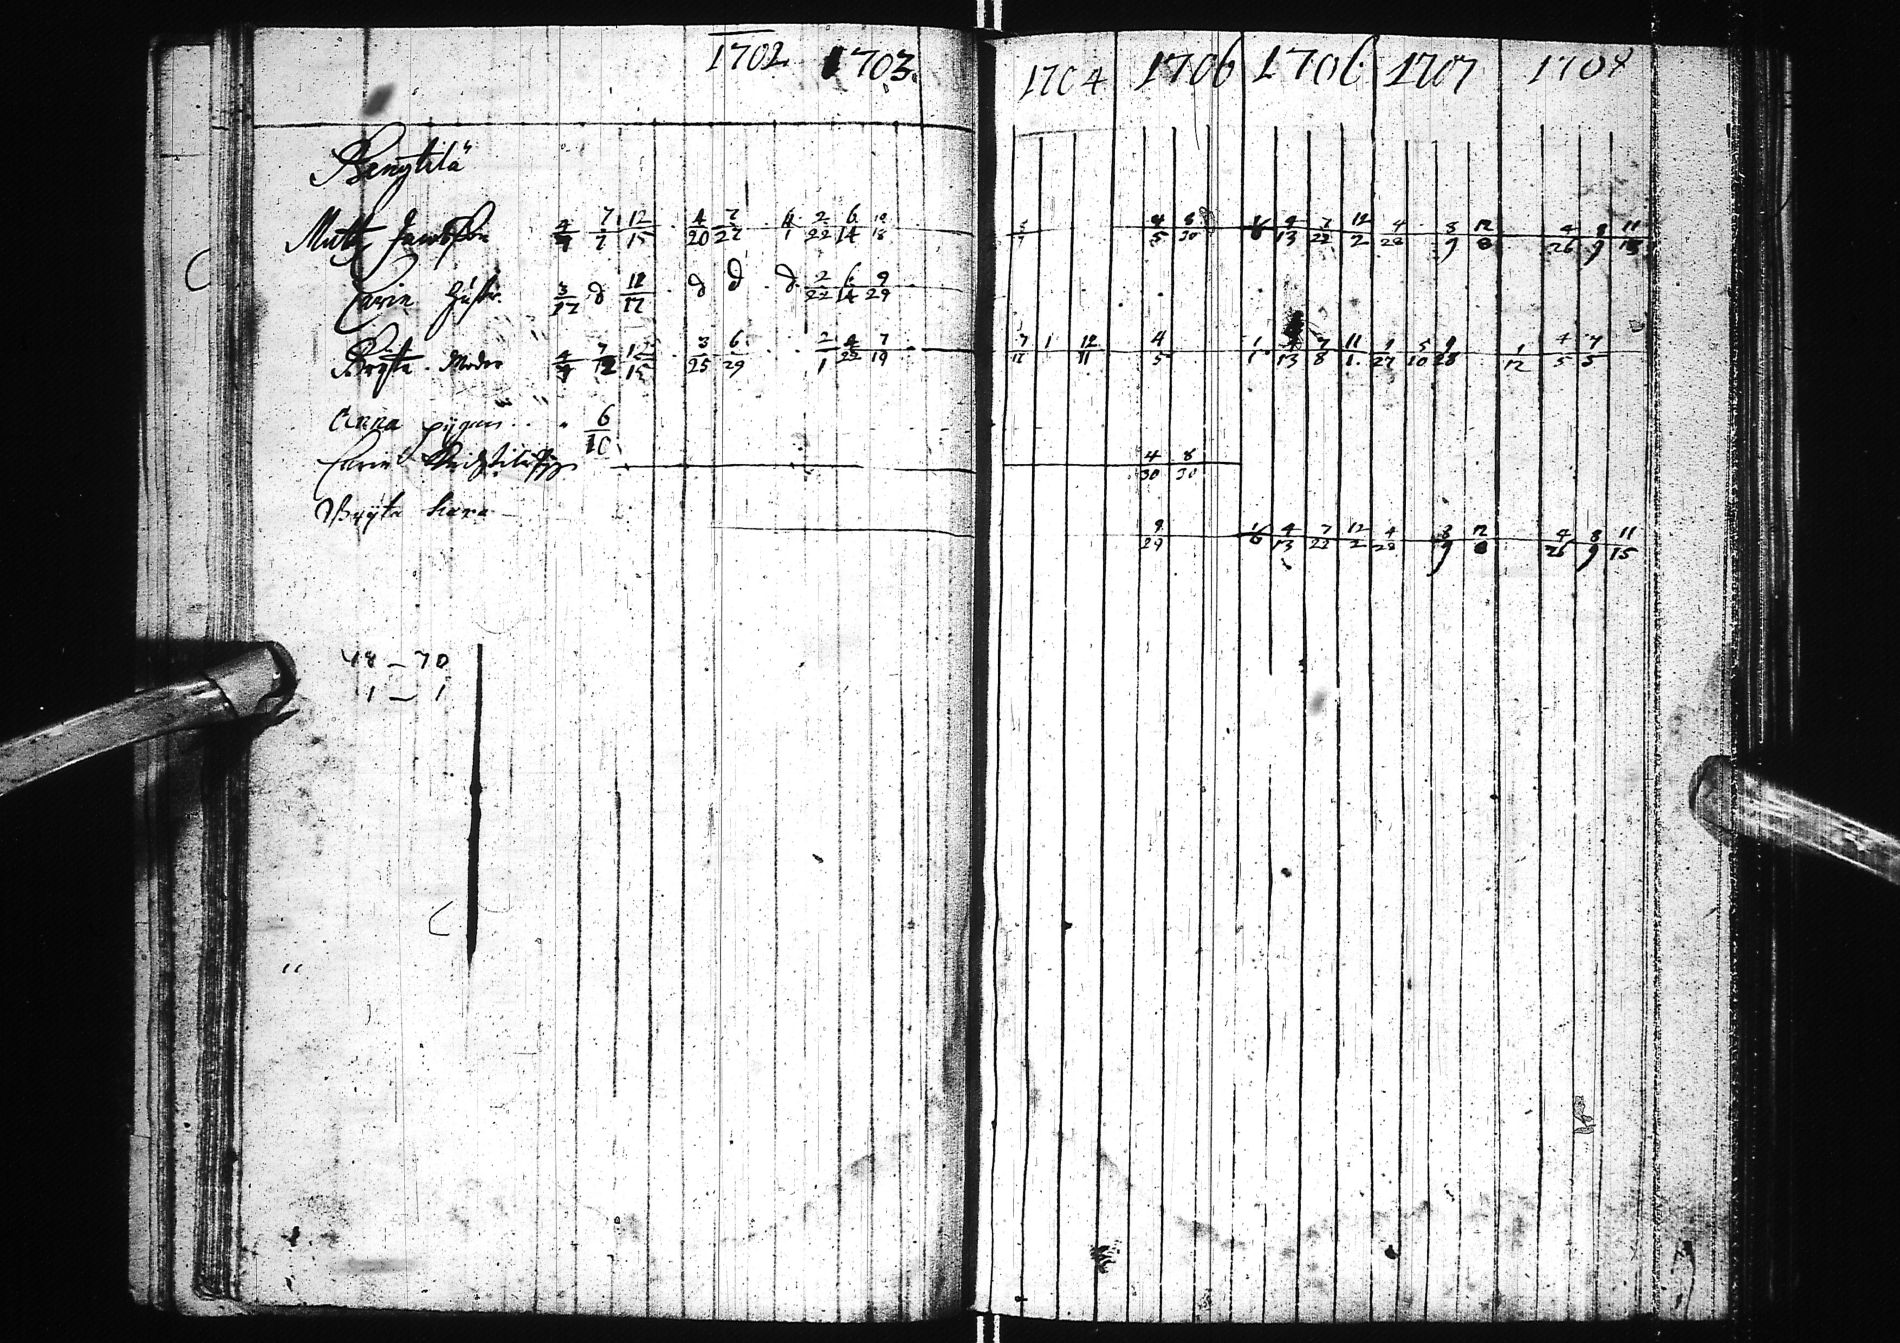 1702 1703. 1704 1706 1706 1707 1708
Bengtilä
Matts Jacobsson 4/9 7/2 12/15 4/20 7/22 4/1 2/22 6/14 10/18 4/5 8/30 1/6 4/13 7/22 12/2 4/28 8/9 12/8 4/26 8/9 11/15
Carin Hustr. 3/27 d 12/12 d d d 2/22 6/14 9/29
Bryta Moder 4/9 7/12 12/15 3/25 6/29 2/1 4/22 7/19 7/12 1 12/11 4/5 1/1 4/13 7/8 11/1 1/27 5/10 9/28 1/12 4/5 7/5
Anna pigan 6/10
Carin 4/30 8/30
Bryta kara 9/29 1/6 4/13 7/22 12/2 4/28 8/9 12/8 4/26 8/9 11/15
48 – 70
1 – 1